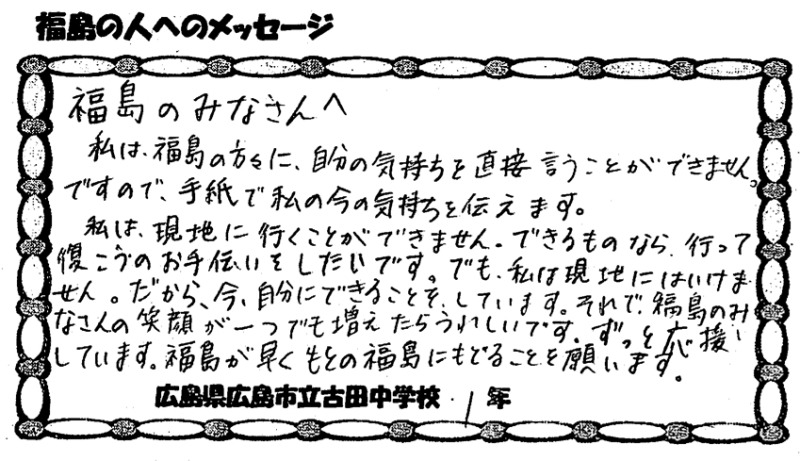 福島の人へのメッセージ
福島のみなさんへ
私は、福島の方々に、自分の気持ちを直接言うことができません。
ですので、手紙で私の今の気持ちを伝えます。
私は、現地に行くことができません。できるものなら、行って
復こうのお手伝いをしたいです。でも、私は現地にはいけま
せん。だから、今、自分にできることを、しています。それで、福島のみ
なさんの笑顔が一つでも増えたらうれしいです。ずっと応援
しています。福島が早くもとの福島にもどることを願います。
広島県広島市立古田中学校 1 年